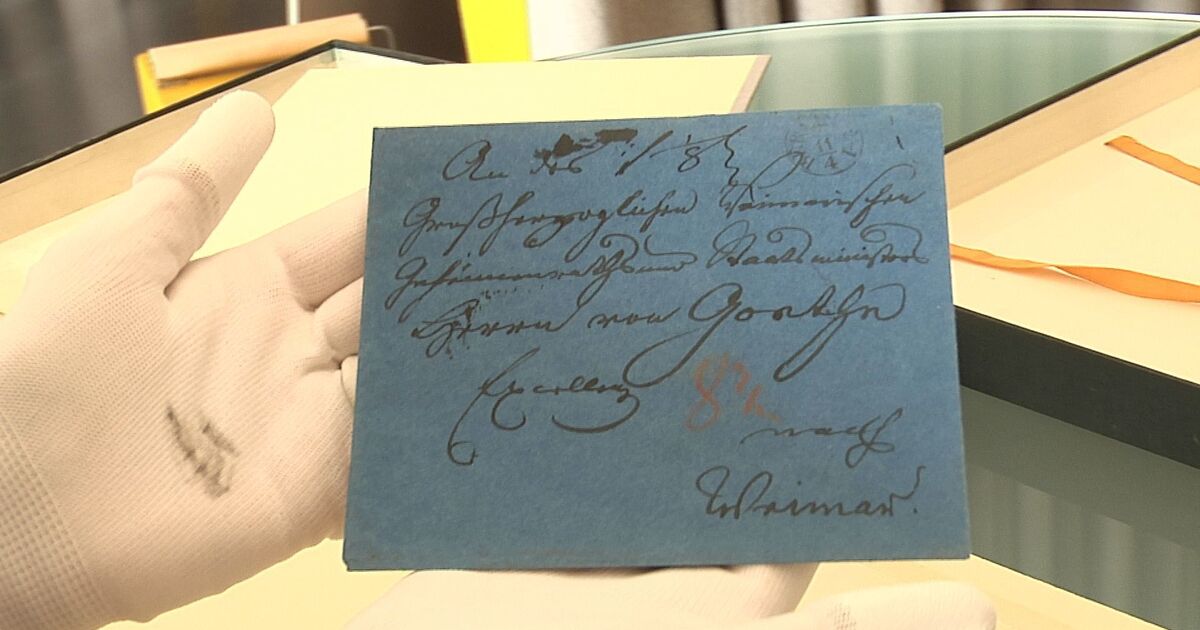 An des
Großherzoglichen Weimarischen
Geheimenraths und Staatsministers
Herrn von Goethe
Excellenz
nach
Weimar.